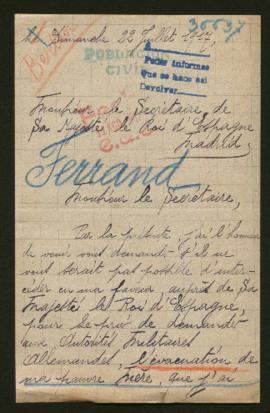 36637
Le Dimanche 22 Juillet 1917,
POBLACION
CIVIL
A
Pedir informes
Que se hace así
Devolver
Monsieur le Secrétaire de
Sa Majesté le Roi d'Espagne
Madrid,
Ferrand
Monsieur le Secrétaire,
Par la présente, j'ai l'honneur
de venir vous demander s'il ne
vous serait pas possible d'inter-
céder en ma faveur auprès de Sa
Majesté le Roi d'Espagne,
pour le prier de demander
aux Autorités Militaires
Allemandes, l'évacuation, de
ma pauvre Mère, que j'ai